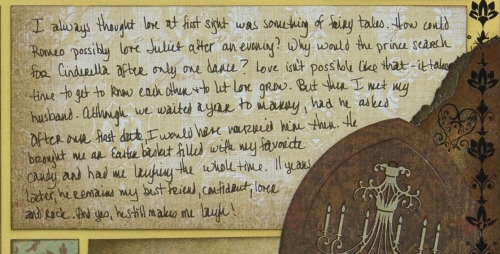 I always thought love at first sight was something of fairy tales. How could
Romeo possibly love Juliet after an evening? Why would the prince search
for Cinderella after only one dance? Love isn't possible like that - it takes
time to get to know each other & to let love grow. But then I met my
husband. Although we waited a year to marry, had he asked
after our first date, I would have married him then. He
brought me an Easter basket filled with my favorite
candy and had me laughing the whole time. 11 years
later, he remains my best friend, confidant, lover
and rock. And yes, he still makes me laugh!